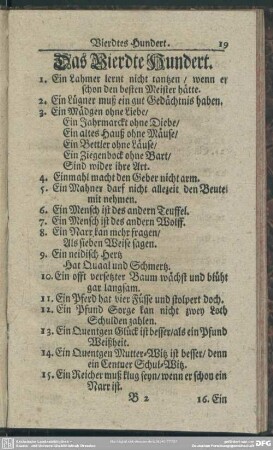 Vierdtes Hundert. 19
Das Vierdte Hundert.
1. Ein Lahmer lernt nicht tantzen / wenn er
schon den besten Meister hätte.
2. Ein Lügner muß ein gut Gedächtnis haben.
3. Ein Mädgen ohne Liebe/
Ein Jahrmarckt ohne Diebe/
Ein altes Hauß ohne Mäuse/
Ein Bettler ohne Läuse/
Ein Ziegenbock ohne Bart/
Sind wider ihre Art.
4. Einmahl macht den Geber nicht arm.
5. Ein Mahner darf nicht allezeit den Beutel
mit nehmen.
6. Ein Mensch ist des andern Teuffel.
7. Ein Mensch ist des andern Wolff.
8. Ein Narr kan mehr fragen/
Als sieben Weise sagen.
9. Ein neidisch Hertz
Hat Quaal und Schmertz.
10. Ein offt versetzter Baum wächst und blüht
gar langsam.
11. Ein Pferd hat vier Füsse und stolpert doch.
12. Ein Pfund Sorge kan nicht zwey Loth
Schulden zahlen.
13. Ein Quentgen Glück ist besser/als ein Pfund
Weißheit.
14. Ein Quentgen Mutter-Witz ist besser/ denn
ein Centner Schul-Witz.
15. Ein Reicher muß klug seyn/ wenn er schon ein
Narr ist.
B 2 16. Ein